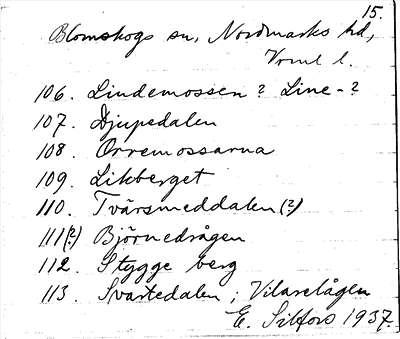 15.
Blomskogs sn, Nordmarks hd,
Vrml l.
106. Lindemossen? Line-?
107. Djupedalen
108. Orremossarna
109. Likberget
110. Tvärsmeddalen (?)
111(?) Björnedrågen
112. Stygge berg
113. Svartedalen; Vilarelågen
E. Silfors 1937.